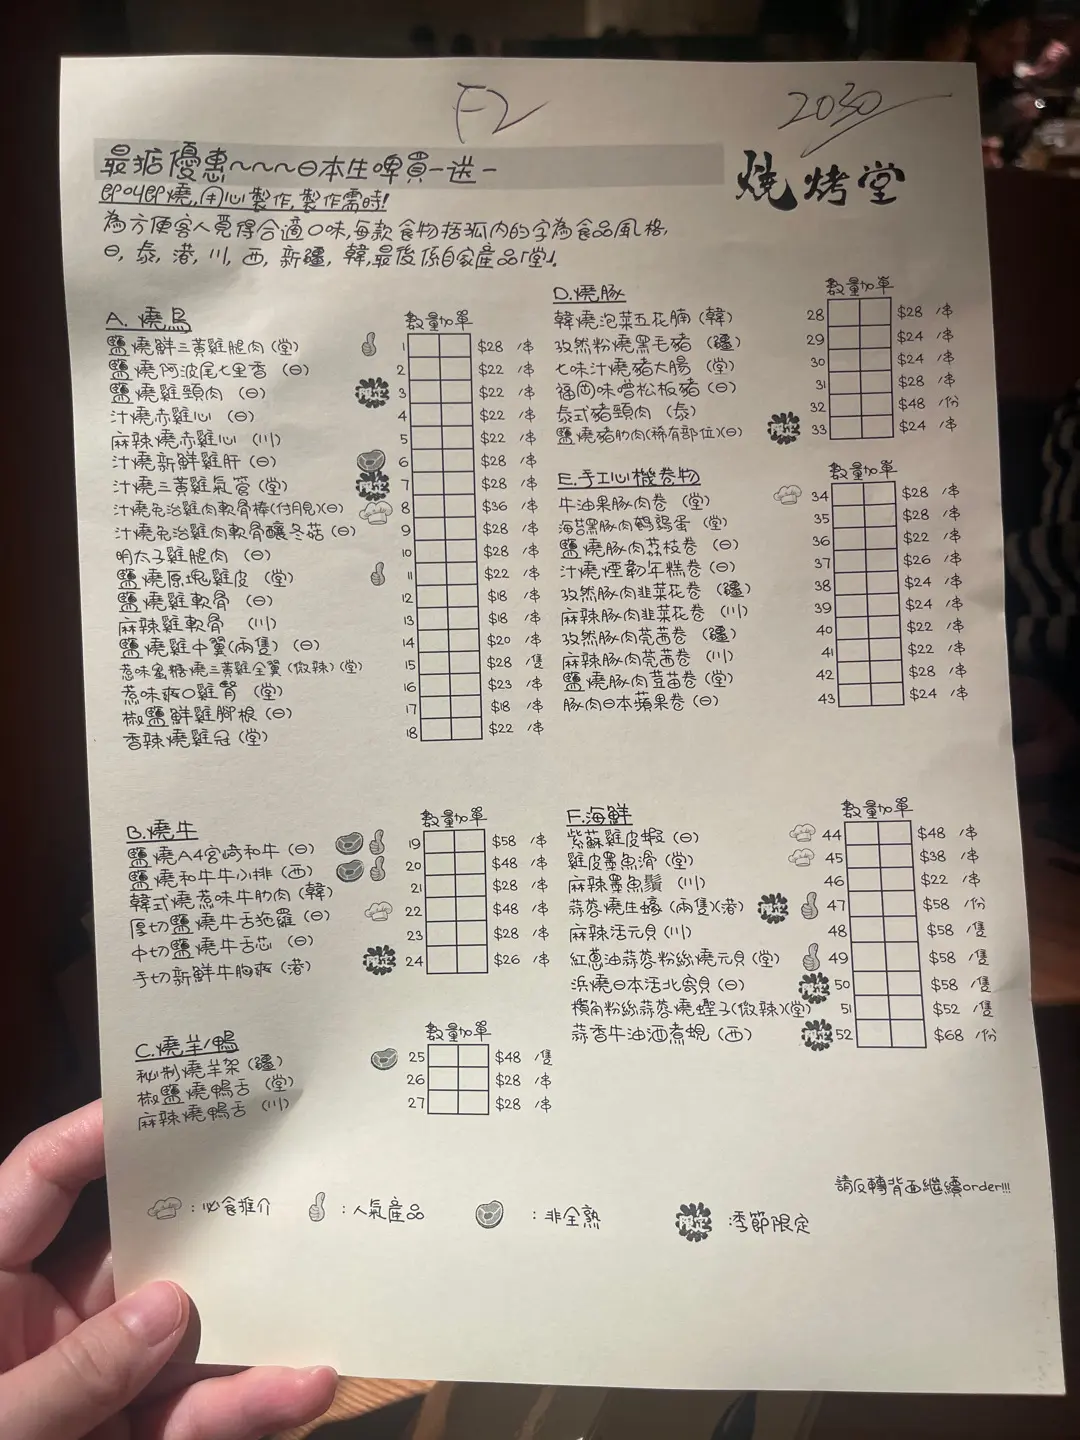 F2
2030
最掂優惠~~~日本生啤買一送一
即叫即燒,用心製作,製作需時!
為方便客人覓得合適口味,每款食物括弧內的字為食品風格,
日,泰,港,川,西,新疆,韓,最後係自家產品「堂」.
燒烤堂
A. 燒鳥 數量 加單
鹽燒鮮三黃雞腿肉 (堂) 1 $28 /串
鹽燒阿波尾七里香 (日) 2 $22 /串
鹽燒雞頸肉 (日) 限定 3 $22 /串
汁燒赤雞心 (日) 4 $22 /串
麻辣燒赤雞心 (川) 5 $22 /串
汁燒新鮮雞肝 (日) 6 $28 /串
汁燒三黃雞氣管 (堂) 限定 7 $28 /串
汁燒免治雞肉軟骨棒(付月見)(日) 8 $36 /串
汁燒免治雞肉軟骨釀冬菇 (日) 9 $28 /串
明太子雞腿肉 (日) 10 $28 /串
鹽燒原塊雞皮 (堂) 11 $22 /串
鹽燒雞軟骨 (日) 12 $18 /串
麻辣雞軟骨 (川) 13 $18 /串
鹽燒雞中翼(兩隻) (日) 14 $20 /串
惹味蜜糖燒三黃雞全翼 (微辣) (堂) 15 $28 /隻
惹味爽口雞腎 (堂) 16 $23 /串
椒鹽鮮雞腳根 (日) 17 $18 /串
香辣燒雞冠 (堂) 18 $22 /串
B. 燒牛 數量 加單
鹽燒A4宮崎和牛 (日) 19 $58 /串
鹽燒和牛牛小排 (西) 20 $48 /串
韓式燒惹味牛肋肉 (韓) 21 $28 /串
厚切鹽燒牛舌拖羅 (日) 22 $48 /串
中切鹽燒牛舌芯 (日) 23 $28 /串
手切新鮮牛胸爽 (港) 限定 24 $26 /串
C. 燒羊/鴨 數量 加單
秘制燒羊架 (疆) 25 $48 /隻
椒鹽燒鴨舌 (堂) 26 $28 /串
麻辣燒鴨舌 (川) 27 $28 /串
D. 燒豚 數量 加單
韓燒泡菜五花腩 (韓) 28 $28 /串
孜然粉燒黑毛豬 (疆) 29 $24 /串
七味汁燒豬大腸 (堂) 30 $24 /串
福岡味噌松板豬 (日) 31 $28 /串
泰式豬頸肉 (泰) 32 $48 /份
鹽燒豬肋肉(稀有部位)(日) 限定 33 $24 /串
E. 手工心機卷物 數量 加單
牛油果豚肉卷 (堂) 34 $28 /串
海苔黑豚肉鵪鶉蛋 (堂) 35 $28 /串
鹽燒豚肉荔枝卷 (日) 36 $22 /串
汁燒煙韌年糕卷 (日) 37 $26 /串
孜然豚肉韭菜花卷 (疆) 38 $24 /串
麻辣豚肉韭菜花卷 (川) 39 $24 /串
孜然豚肉芫茜卷 (疆) 40 $22 /串
麻辣豚肉芫茜卷 (川) 41 $22 /串
鹽燒豚肉荳苗卷 (堂) 42 $28 /串
豚肉日本蘋果卷 (日) 43 $24 /串
F. 海鮮 數量 加單
紫蘇雞皮蝦 (日) 44 $48 /串
雞皮墨魚滑 (堂) 45 $38 /串
麻辣墨魚鬚 (川) 46 $22 /串
蒜蓉燒生蠔 (兩隻)(港) 限定 47 $58 /份
麻辣活元貝 (川) 48 $58 /隻
紅蔥油蒜蓉粉絲燒元貝 (堂) 49 $58 /隻
浜燒日本活北寄貝 (日) 限定 50 $58 /隻
欖角粉絲蒜蓉燒蟶子(微辣)(堂) 51 $52 /隻
蒜香牛油酒煮蜆 (西) 限定 52 $68 /份
請反轉背面繼續order!!!
:必食推介 :人氣產品 :非全熟 限定 :季節限定